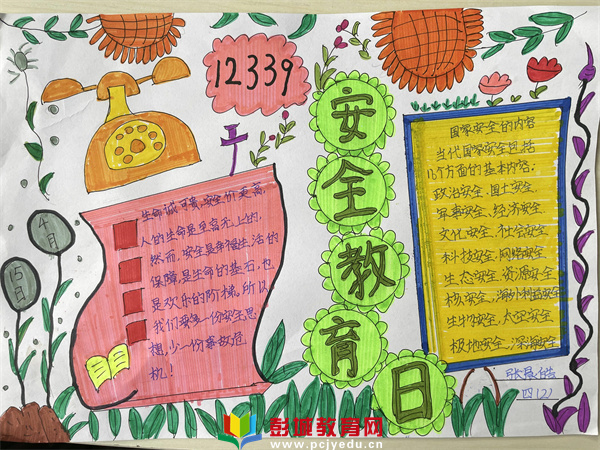 12339
安全教育日
4月
15日
生命诚可贵,安全价更高,
人的生命是至高无上的,
然而,安全是幸福生活的
保障,是生命的基石,也
是欢乐的阶梯。所以,
我们要多一份安全思
想,少一份事故危
机!
国家安全的内容
当代国家安全包括
16个方面的基本内容:
政治安全、国土安全、
军事安全、经济安全、
文化安全、社会安全、
科技安全、网络安全、
生态安全、资源安全、
核安全、海外利益安全、
生物安全、太空安全、
极地安全、深海安全
四(2)
彭城教育网
www.pcjyedu.cn